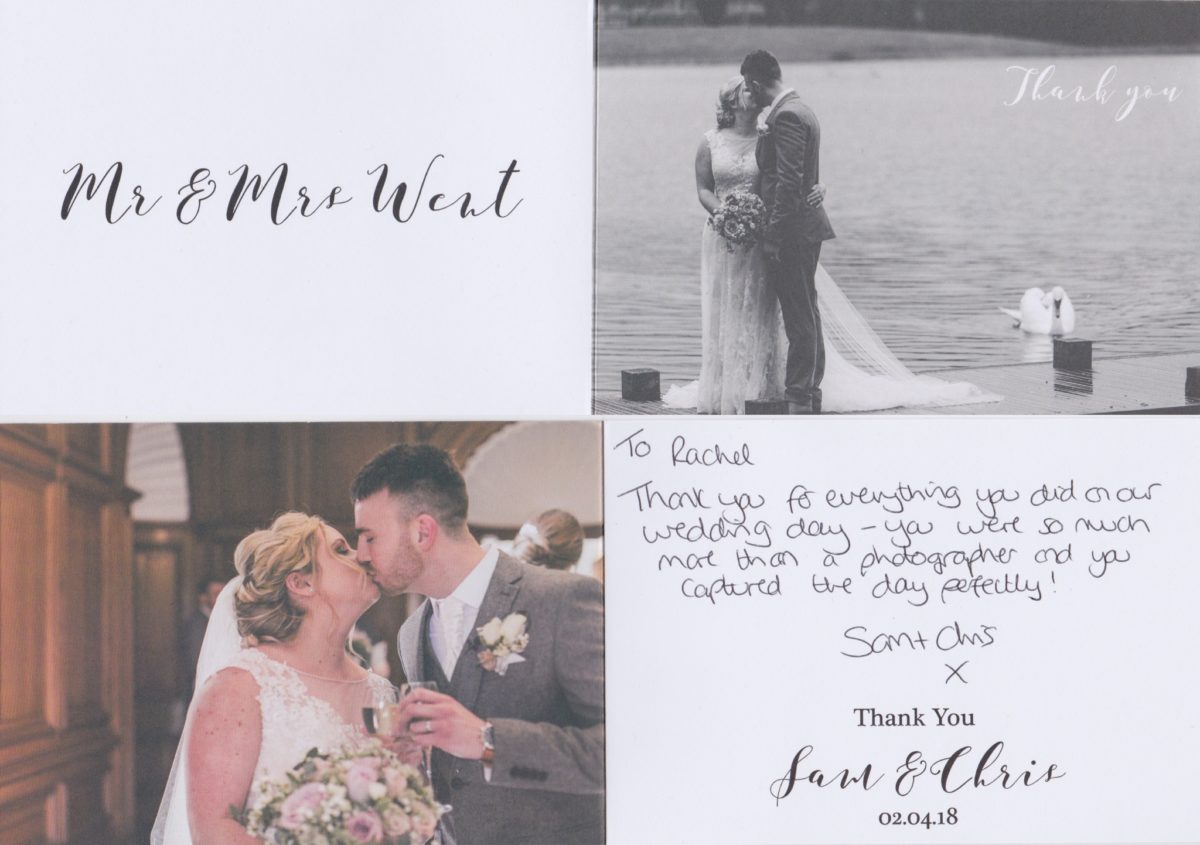 Mr & Mrs Went
Thank you
To Rachel
Thank you for everything you did on our
wedding day – you were so much
more than a photographer and you
captured the day perfectly!
Sam + Chris
X
Thank You
Sam & Chris
02.04.18